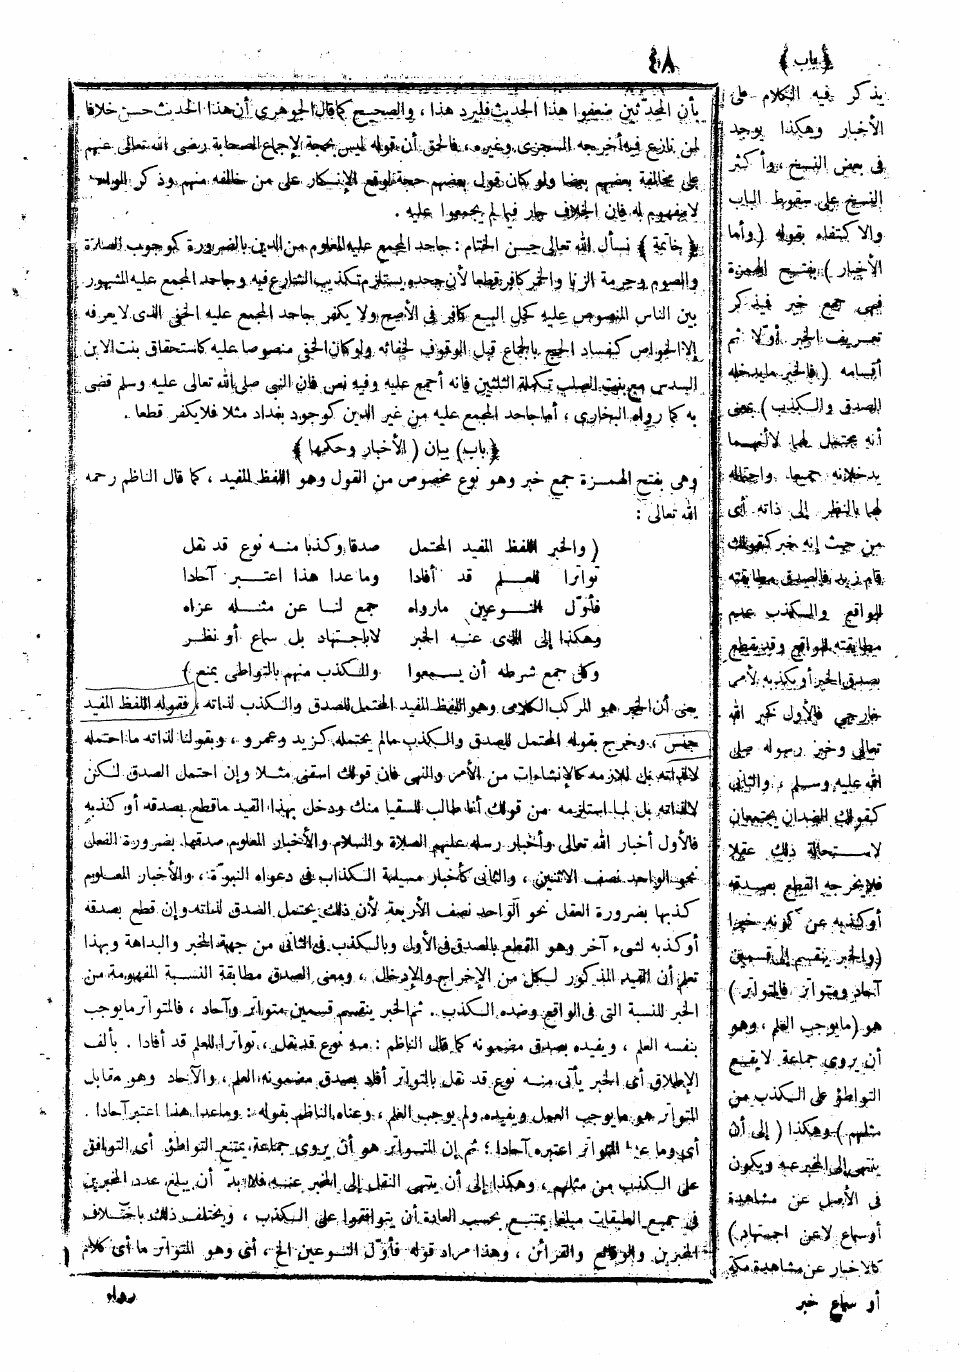 ﴿ باب ﴾
٤٨
بأن المحدّثين ضعفوا هذا الحديث فليرد هذا ، والصحيح كما قال الجوهري أن هذا الحدث حسن خلافا
لمن نازع فيه أخرجه السجزى وغيره ، فالحق أن قوله ليس بحجة لإجماع الصحابة رضى الله تعالى عنهم
على مخالفة بعضهم بعضا ولو كان قول بعضهم حجة لوقع الإنكار على من خالفه منهم وذكر الواحد
لا مفهوم له فان الخلاف جار فيما لم يجمعوا عليه .
﴿ خاتمة ﴾ نسأل الله تعالى حسن الختام : جاحد المجمع عليه المعلوم من الدين بالضرورة كوجوب الصلاة
والصوم وحرمة الزنا والخمر كافر قطعا لأن جحده يستلزم تكذيب الشارع فيه وجاحد المجمع عليه المشهور
بين الناس المنصوص عليه كحل البيع كافر فى الأصح ولا يكفر جاحد المجمع عليه الخفى الذى لا يعرفه
إلا الخواص كفساد الحج بالجماع قبل الوقوف لخفائه ولو كان الخفى منصوصا عليه كاستحقاق بنت الابن
السدس مع بنت الصلب تكملة الثلثين فانه أجمع عليه وفيه نص فان النبى صلى الله تعالى عليه وسلم قضى
به كما رواه البخارى ، أما جاحد المجمع عليه من غير الدين كوجود بغداد مثلا فلا يكفر قطعا .
﴿ باب ) بيان ( الأخبار وحكمها ﴾
وهى بفتح الهمزة جمع خبر وهو نوع مخصوص من القول وهو اللفظ المفيد ، كما قال الناظم رحمه
الله تعالى :
( والخبر اللفظ المفيد المحتمل صدقا وكذبا منه نوع قد نقل
تواترا للعلم قد أفادا وما عدا هذا اعتبر آحادا
فأوّل النوعين مارواه جمع لنا عن مثله عزاه
وهكذا إلى الذى عنه الخبر لا باجتهاد بل سماع أو نظر
وكل جمع شرطه أن يسمعوا والكذب منهم بالتواطى يمنع )
يعنى أن الخبر هو المركب الكلامى وهو اللفظ المفيد المحتمل للصدق والكذب لذاته ، فقوله اللفظ المفيد
جنس ، وخرج بقوله المحتمل للصدق والكذب مالم يحتمله كزيد وعمرو ، وبقولنا لذاته ما احتمله
لا لذاته بل للازمه كالإنشاءات من الأمر والنهى فان قولك اسقنى مثلا وإن احتمل الصدق لكن
لا لذاته بل لما استلزمه من قولك أنا طالب للسقيا منك ودخل بهذا القيد ما قطع بصدقه أو كذبه
فالأول أخبار الله تعالى وأخبار رسله عليهم الصلاة والسلام والأخبار المعلوم صدقها بضرورة العقل
نحو الواحد نصف الاثنين ، والثانى كأخبار مسيلمة الكذاب فى دعواه النبوّة ، والأخبار المعلوم
كذبها بضرورة العقل نحو الواحد نصف الأربعة لأن ذلك يحتمل الصدق لذاته وإن قطع بصدقه
أو كذبه لشىء آخر وهو القطع بالصدق فى الأول وبالكذب فى الثانى من جهة المخبر والبداهة وبهذا
تعلم أن القيد المذكور لكل من الإخراج والإدخال ، ومعنى الصدق مطابقة النسبة المفهومة من
الخبر للنسبة التى فى الواقع وضده الكذب . ثم الخبر ينقسم قسمين متواتر وآحاد ، فالمتواتر ما يوجب
بنفسه العلم ، ويفيده بصدق مضمونه كما قال الناظم : منه نوع قد نقل ، تواترا للعلم قد أفادا . بألف
الإطلاق أى الخبر يأتى منه نوع قد نقل بالتواتر أفاد بصدق مضمونه العلم ، والآحاد وهو مقابل
المتواتر هو ما يوجب العمل ويفيده ولم يوجب العلم ، وعناه الناظم بقوله : وما عدا هذا اعتبر آحادا .
أى وما عدا المتواتر اعتبره آحادا ؛ ثم إن المتواتر هو أن يروى جماعة يمتنع التواطؤ أى التوافق
على الكذب من مثلهم ، وهكذا إلى أن ينتهى النقل إلى المخبر عنه فلا بدّ أن يبلغ عدد المخبرين
فى جميع الطبقات مبلغا يمتنع بحسب العادة أن يتوافقوا على الكذب ، ويختلف ذلك باختلاف
المخبرين والوقائع والقرائن ، وهذا مراد قوله فأوّل النوعين الخ ، أى وهو المتواتر ما أى كلام
رواه
يذكر فيه الكلام على
الأخبار وهكذا يوجد
فى بعض النسخ ، وأكثر
النسخ على سقوط الباب
والاكتفاء بقوله ( وأما
الأخبار ) بفتح الهمزة
فهى جمع خبر فيذكر
تعريف الخبر أولا ثم
أقسامه ( فالخبر ما يدخله
الصدق والكذب ) بمعنى
أنه يحتمل لهما لا أنهما
يدخلانه جميعا واحتماله
لهما بالنظر إلى ذاته أى
من حيث إنه خبر كقولك
قام زيد فالصدق مطابقته
للواقع والكذب عدم
مطابقته للواقع وقد يقطع
بصدق الخبر أو بكذبه لأمر
خارجى فالأول كخبر الله
تعالى وخبر رسوله صلى
الله عليه وسلم ، والثانى
كقولك الضدان يجتمعان
لاستحالة ذلك عقلا
فلا يخرجه القطع بصدقه
أو كذبه عن كونه خبرا
( والخبر ينقسم إلى قسمين
آحاد ومتواتر فالمتواتر )
هو ( ما يوجب العلم ، وهو
أن يروى جماعة لا يقع
التواطؤ على الكذب من
مثلهم ) وهكذا ( إلى أن
ينتهى إلى المخبر عنه ويكون
فى الأصل عن مشاهدة
أو سماع لا عن اجتهاد )
كالاخبار عن مشاهدة مكة
أو سماع خبر